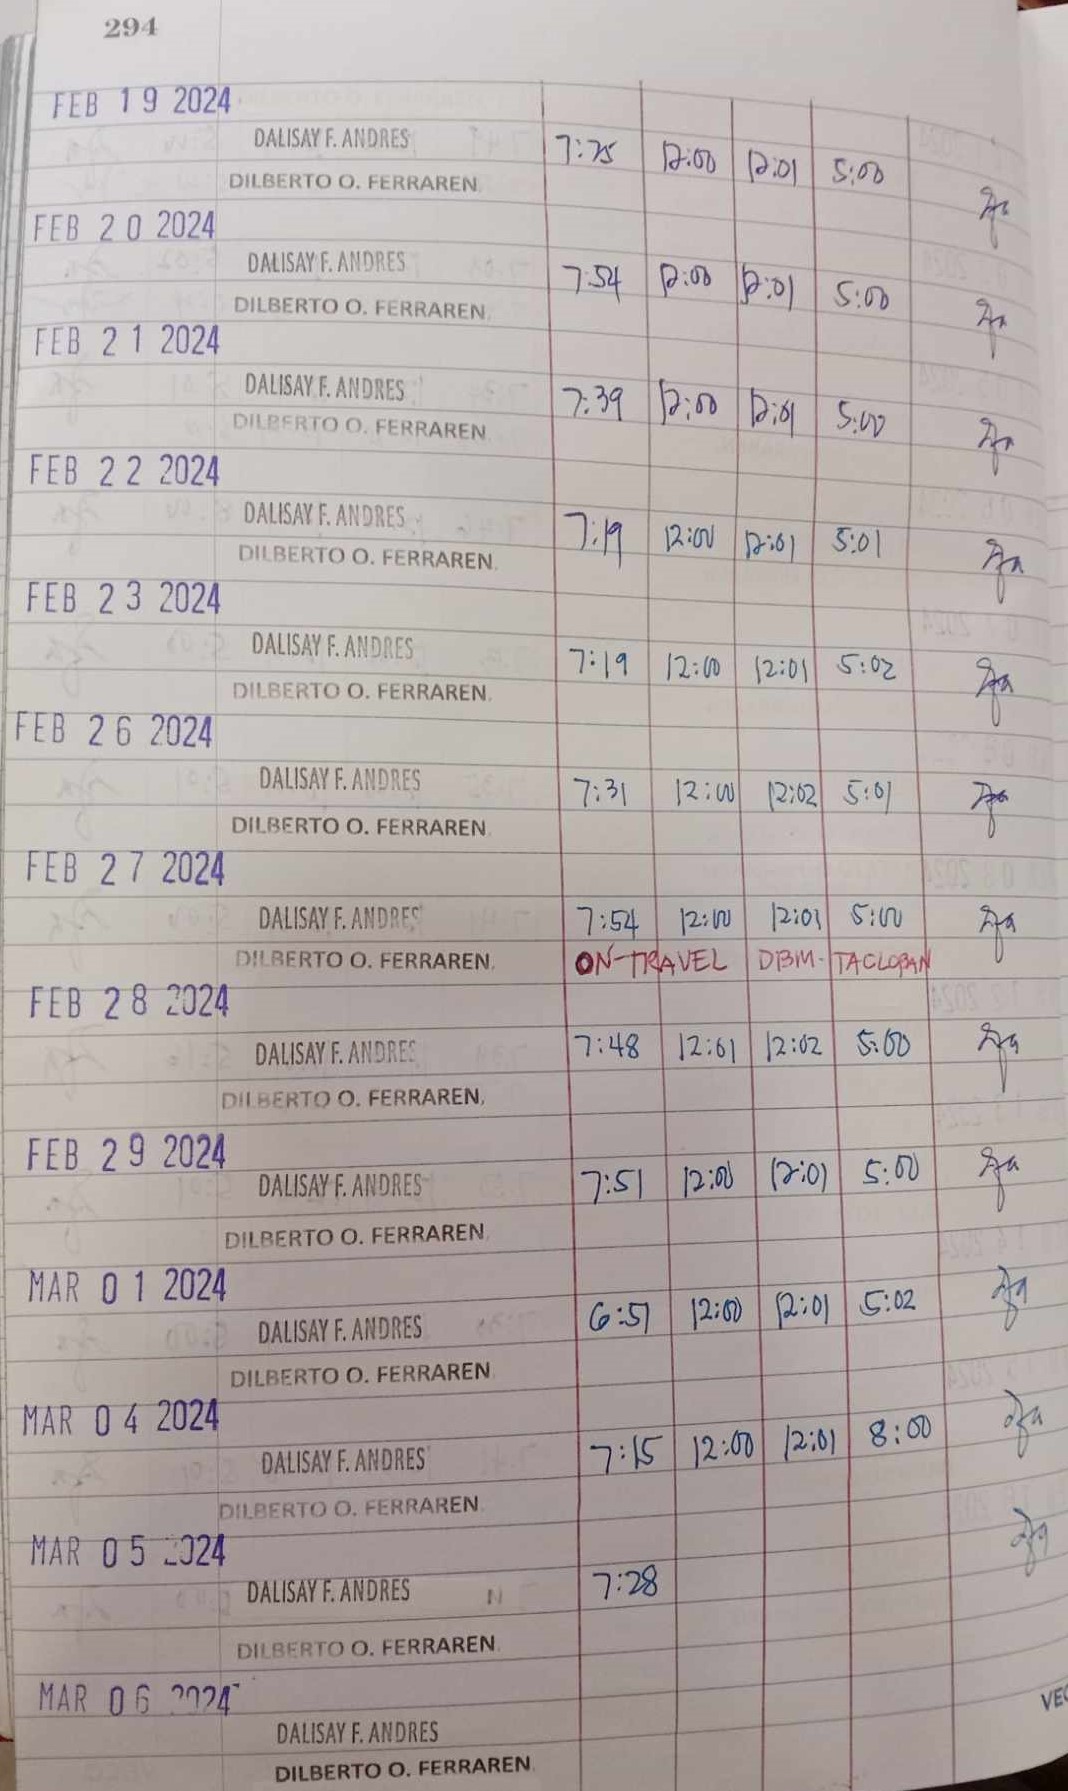 294
FEB 19 2024
DALISAY F. ANDRES 7:25 12:00 12:01 5:00
DILBERTO O. FERRAREN.
FEB 20 2024
DALISAY F. ANDRES 7:54 12:00 12:01 5:00
DILBERTO O. FERRAREN.
FEB 21 2024
DALISAY F. ANDRES 7:39 12:00 12:01 5:00
DILBERTO O. FERRAREN.
FEB 22 2024
DALISAY F. ANDRES 7:19 12:00 12:01 5:01
DILBERTO O. FERRAREN.
FEB 23 2024
DALISAY F. ANDRES 7:19 12:00 12:01 5:02
DILBERTO O. FERRAREN.
FEB 26 2024
DALISAY F. ANDRES 7:31 12:00 12:02 5:01
DILBERTO O. FERRAREN.
FEB 27 2024
DALISAY F. ANDRES 7:54 12:00 12:01 5:00
DILBERTO O. FERRAREN. ON-TRAVEL DBM-TACLOBAN
FEB 28 2024
DALISAY F. ANDRES 7:48 12:01 12:02 5:00
DILBERTO O. FERRAREN.
FEB 29 2024
DALISAY F. ANDRES 7:51 12:00 12:01 5:00
DILBERTO O. FERRAREN.
MAR 01 2024
DALISAY F. ANDRES 6:51 12:00 12:01 5:02
DILBERTO O. FERRAREN.
MAR 04 2024
DALISAY F. ANDRES 7:15 12:00 12:01 8:00
DILBERTO O. FERRAREN.
MAR 05 2024
DALISAY F. ANDRES 7:28
DILBERTO O. FERRAREN.
MAR 06 2024
DALISAY F. ANDRES
DILBERTO O. FERRAREN.